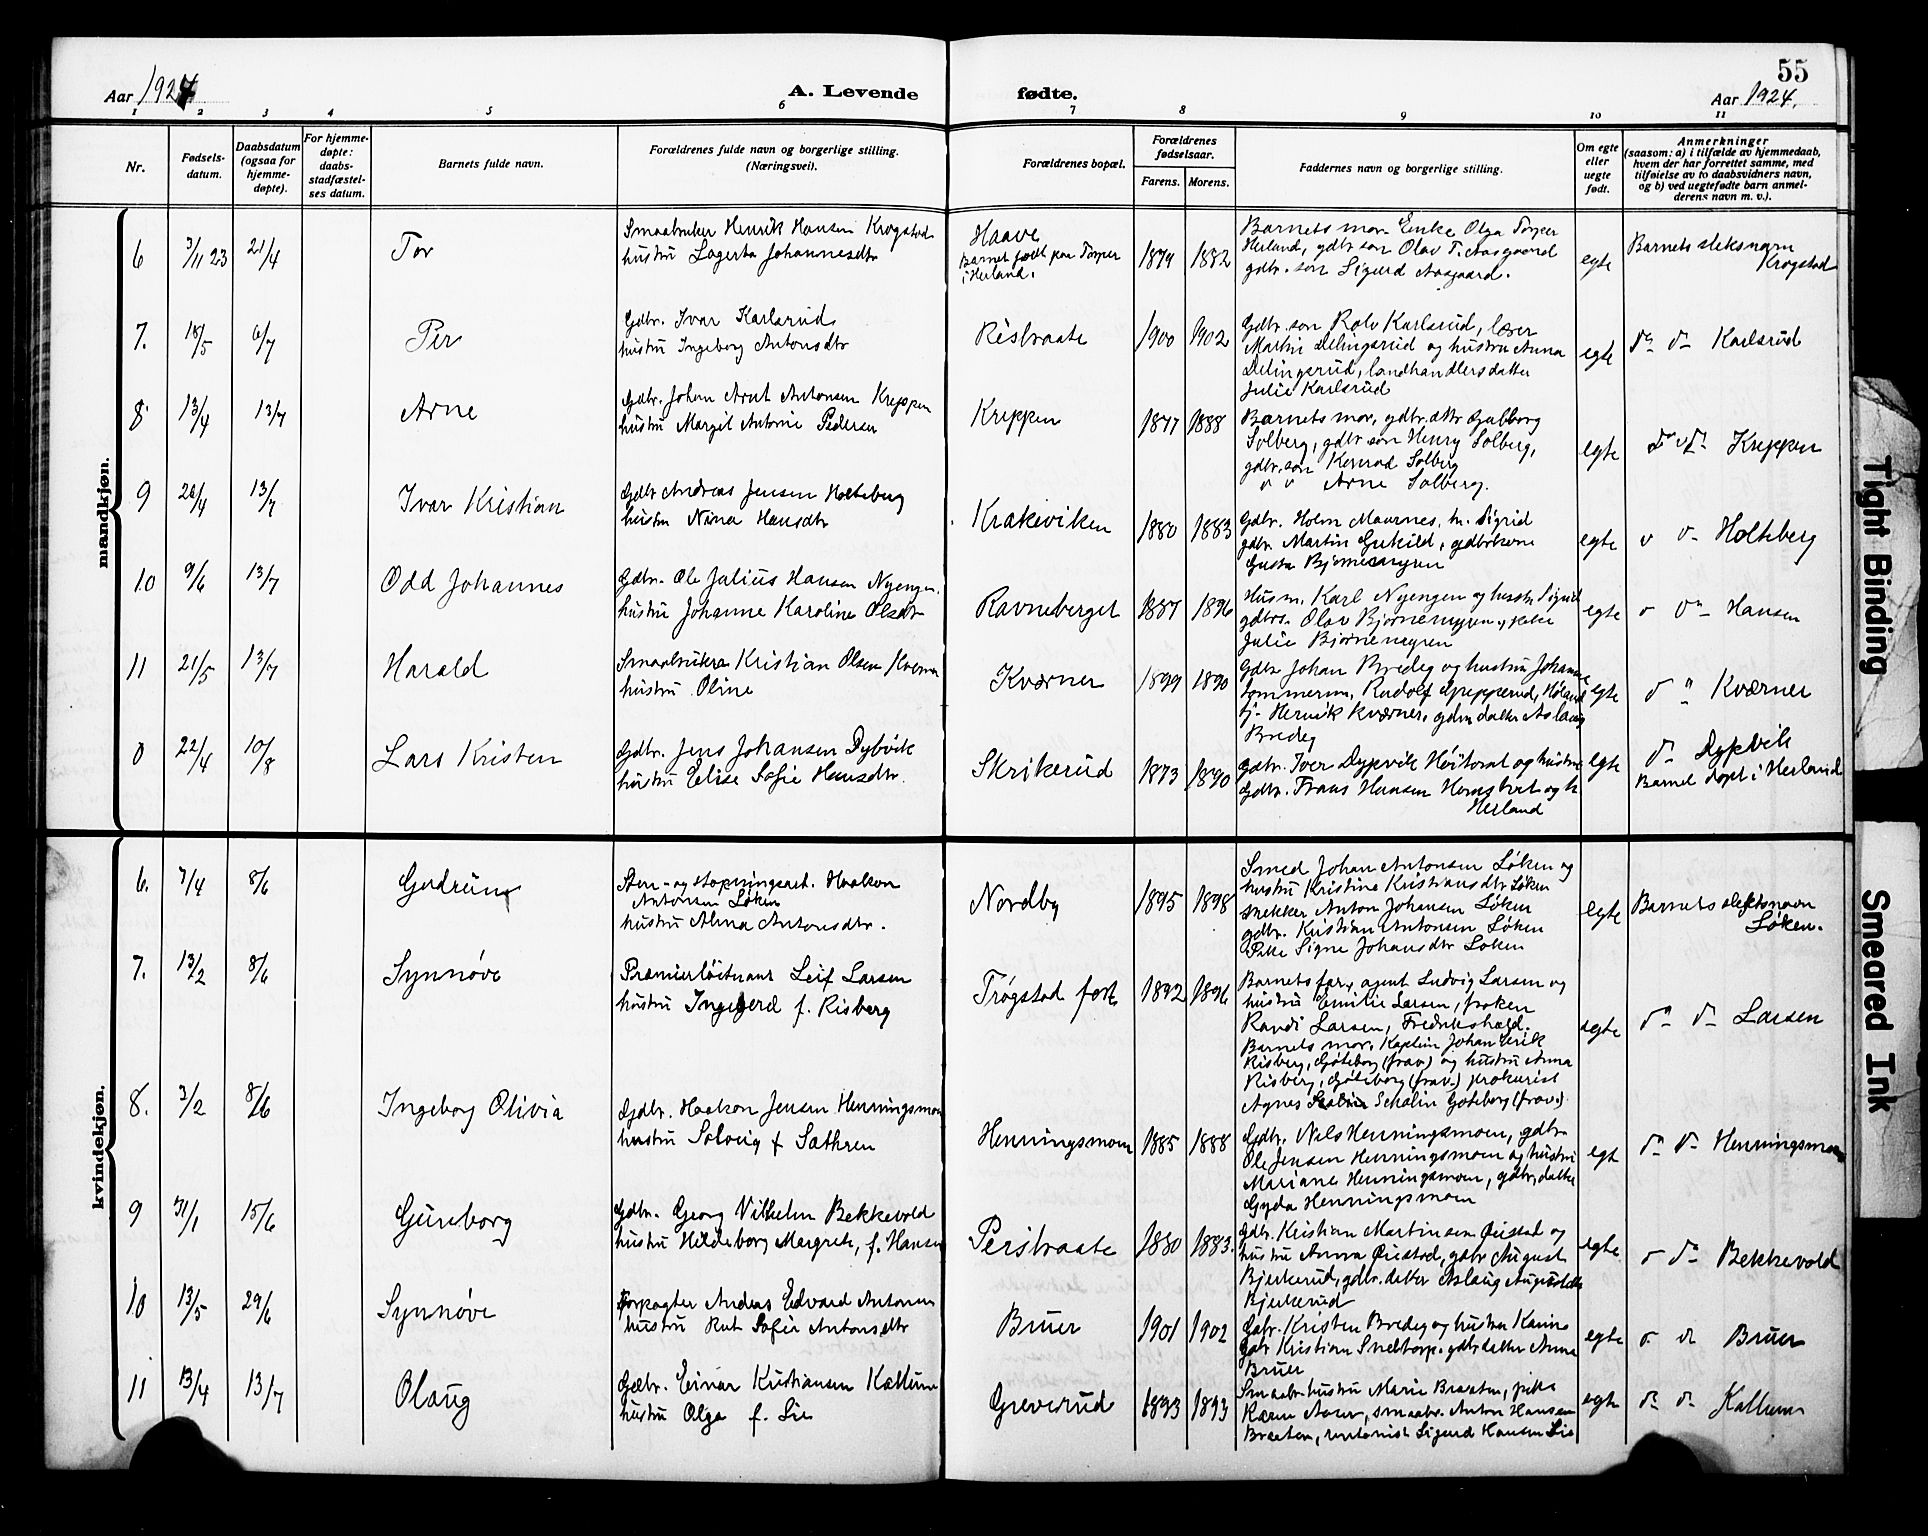 55
Aar 1924
A. Levende fødte.
Aar 1924.
1 2 3 4 5 6 7 8 9 10 11
Nr.
Fødsels-
datum.
Daabsdatum
(ogsaa for
hjemme-
døpte).
For hjemme-
døpte:
daabs-
stadfæstel-
ses datum.
Barnets fulde navn.
Forældrenes fulde navn og borgerlige stilling.
(Næringsvei).
Forældrenes bopæl.
Forældrenes
fødselsaar.
Farens. Morens.
Faddernes navn og borgerlige stilling.
Om egte
eller
uegte
født.
Anmerkninger
(saasom: a) i tilfælde av hjemmedaab,
hvem der har forrettet samme, med
tilføielse av to daabsvidners navn,
og b) ved uegtefødte barn anmel-
derens navn m. v.).
mandkjøn.
6 3/11 23 21/4 Tor
Smaabruker Henrik Hansen Krogstad
hustru Lagerta Johannesdtr
Haave
Barnet født paa Torper
i Herland.
1879 1882
Barnets mor. Enke Olga Torper
Herland, gdbr. søn Olav T. Aasgaard
gdbr. søn Sigurd Aasgaard.
egte
Barnets sleksnavn
Krogstad
7. 18/5 6/7 Per
Gdbr. Ivar Karlsrud
hustru Ingeborg Antonsdtr
Risbraate 1900 1902
Gdbr. søn Rolv Karlsrud, lærer
Martin Delingsrud og hustru Anna
Delingsrud, landhandlersdatter
Julie Karlsrud
egte
do do Karlsrud
8 13/4 13/7 Arne
Gdbr. Johan Arnt Antonsen Kreppen
hustru Margit Antonie Pedersen
Kreppen 1877 1888
Barnets mor, gdbr. dttr Gubborg
Solberg, gdbr søn Henry Solberg,
gdbr. søn Konrad Solberg
" " Arne Solberg.
egte
do do Kreppen
9 26/4 13/7 Ivar Kristian
Gdbr Andreas Jensen Holteberg
hustru Nina Hansdtr
Krakeviken 1880 1883
Gdbr. Holm Maurnes, h. Sigrid
gdbr. Martin , gdbrkone
Gusta Bjørnemyren
egte
" do Holteberg
10 9/6 13/7 Odd Johannes
Gdbr. Ole Julius Hansen Nyengen.
hustru Johanne Karoline Olsdtr
Ravneberget 1887 1896
Husm. Karl Nyengen og hustr Signe
gdbrs. Olav Bjørnemyren, pike
Julie Bjørnemyren
egte
" do Hansen
11 21/5 13/7 Harald
Smaabruker Kristian Olsen Kværner
hustru Oline
Kværner 1899 1890
Gdbr. Johan Bredeg og hustru Johanne
tømmerm. Rudolf , Høland
Henrik Kværner, gdbr datter Aslaug
Bredeg
egte
do " Kværner
0 22/4 10/8 Lars Kristen
Gdbr. Jens Johansen Dybvik
hustru Elise Sofie Hansdtr.
Skrikerud 1873 1870
Gdbr. Iver Dypvik og hustru
Gdbr. Frans Hansen og h
Herland
egte
do Dypvik
Barnet døpt i Herland
kvindekjøn.
6. 7/4 8/6 Gudrun
Sten- og støpningsarb. Haakon
Antonsen Løken
hustru Alma Antonsdtr.
Nordby 1895 1898
Smed Johan Antonsen Løken og
hustru Kristine Kristiansdtr Løken
snekker Anton Johansen Løken
gdbr. Kristian Antonsen Løken
Pike Signe Johansdtr Løken
egte
Barnets slektsnavn
Løken.
7. 13/2 8/6 Synnøve
Premierløitnant Leif Larsen
hustru Ingegerd f. Risberg
Trøgstad fort 1892 1896
Barnets far, agent Ludvig Larsen og
hustru Emilie Larsen, frøken
Randi Larsen, Fredrikshald.
Barnets mor. Kaptein Johan Erik
Risberg, Gøteborg (frav.) og hustru Anna
Risberg, Gøteborg (frav.) prokurist
Agnes Schalin Gøteborg (frav.)
egte
do do Larsen
8. 3/2 8/6 Ingeborg Olivia
Gdbr. Haakon Jensen Henningsmoen
hustru Solveig f. Sæthren
Henningsmoen 1885 1888
Gdbr. Nils Henningsmoen, gdbr
Ole Jensen Henningsmoen og hustru
Mariane Henningsmoen, gdbr. datter
Gyda Henningsmoen
egte
do do Henningsmoen
9 31/1 15/6 Gunborg
Gdbr. Georg Vilhelm Bekkevold
hustru Hildeborg Margrete, f. Hansen
Persbraate 1880 1883.
Gdbr. Kristian Martinsen Øiestad og
hustru Anna Øiestad, gdbr August
Bjerkerud, gdbr. datter Aslaug Augustdtr
Bjerkerud
egte
" do Bekkevold
10 13/5 29/6 Synnøve
Forpagter Andreas Edvard Antonsen
hustru Rut Sofie Antonsdtr
Bruer 1901 1902
Gdbr. Kristen Bredeg og hustru Karine
gdbr Kristian Sneltorp. gdbr datter Anna
Bruer
egte
do do Bruer
11 13/4 13/7 Olaug
Gdbr. Einar Kristiansen Kallum
hustru Olga f. Lie
Greverud 1893 1893
Smaabr. hustru Marie Braaten, pike
Karen , smaabr. Anton Hansen
Braaten, Sigurd Hansen Lie
egte
do do Kallum
Tight Binding
Smeared Ink